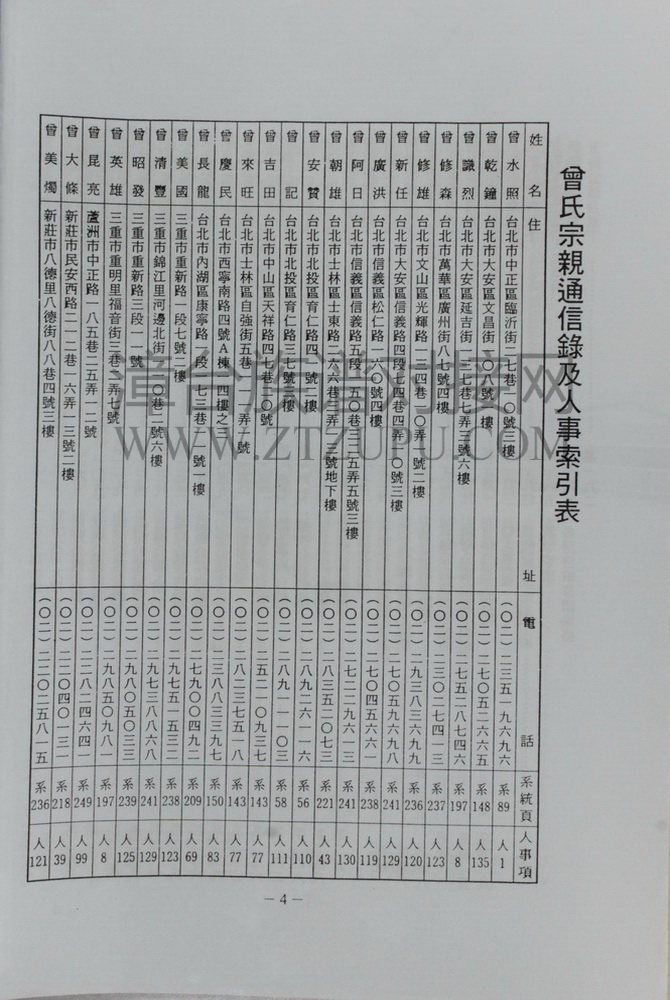 曾氏宗親通信錄及人事索引表
姓名 住址 電話 系統頁 人事項
曾水照 台北市中正區臨沂街二七巷一〇號三樓 (〇二)二三五一九六九六 系89 人1
曾乾鐘 台北市大安區文昌街 八號 樓 (〇二)二七〇五二六六五 系148 人135
曾識烈 台北市大安區延吉街 三七巷七弄三號六樓 (〇二)二七五二八七四六 系197 人8
曾修森 台北市萬華區廣州街八七號四樓 (〇二)二三〇二七四一三 系237 人123
曾修雄 台北市文山區光輝路 三四巷二〇弄 號二樓 (〇二)二九三八三六九八 系236 人120
曾新任 台北市大安區信義路四段七四巷四弄 〇號三樓 (〇二)二七〇五二九六七九 系241 人129
曾廣洪 台北市信義區松仁路 六〇號四樓 (〇二)二七〇四五六六一 系238 人119
曾阿日 台北市信義區信義路五段 五〇巷三 五弄五號三樓 (〇二)二七二二九六一三 系241 人130
曾朝雄 台北市士林區士東路二六六巷三弄 三號地下樓 (〇二)二八三五二〇七三 系221 人43
曾安贊 台北市北投區育仁路四 號 樓 (〇二)二八九二六一一六 系56 人110
曾記 台北市北投區育仁路三七號 樓 (〇二)二八九一一一〇三 系58 人111
曾吉田 台北市中山區天祥路四七 〇號 (〇二)二五二一〇九三七 系143 人77
曾來旺 台北市士林區自強街五巷 弄 號 (〇二)二八二三七五一八 系143 人77
曾慶民 台北市西寧南路四號A棟 四樓之三 (〇二)二三八八三三九七 系150 人83
曾長龍 台北市內湖區康寧路一段 七三巷 二 號一樓 (〇二)二七九〇〇四九二 系209 人69
曾美國 三重市重新路一段七號 樓 (〇二)二九七五一五三二 系238 人123
曾清豐 三重市錦江里河邊北街 〇巷二號六樓 (〇二)二九七三八八六八 系241 人129
曾昭發 三重市重新路三段一一號 (〇二)二九八五〇三三 系239 人125
曾英雄 三重市重明里福音街三巷 弄七號 (〇二)二九八五〇九八一 系197 人8
曾昆亮 蘆洲市中正路一八五巷二五弄一二號 (〇二)二二八二四六四 系249 人99
曾大條 新莊市民安西路二一二巷一六弄一三號二樓 (〇二)二二〇四〇一三一 系218 人39
曾美燭 新莊市八德里八德街八八巷四號三樓 (〇二)二二〇二五八一五 系236 人121
漳台族譜对接网
WWW.ZTZUPU.COM
－4－